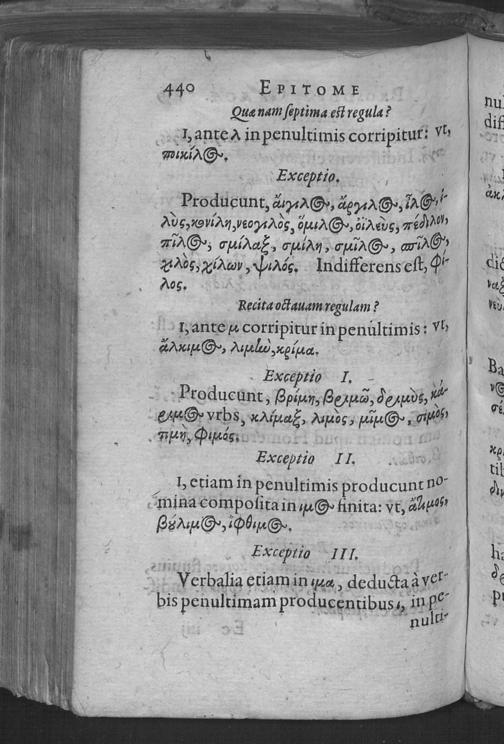 440 EPITOME
Quæ nam septima est regula?
I, ante λ in penultimis corripitur: vt,
ποικίλος.
Exceptio.
Producunt, ἄιγιλος, ἄργιλος, ἶλος, ἰ-
λὺς, κονίλη, νεογιλὸς, ὅμιλος, ὀϊλεὺς, πέδιλον,
πῖλος, σμίλαξ, σμίλη, σμῖλος,
χιλὸς, χίλων, ψιλός. Indifferens est, φί-
λος.
Recita octauam regulam?
I, ante μ corripitur in penultimis: vt,
ἄλκιμος, λιμὼ, κρίμα.
Exceptio I.
Producunt, βρίμη, βριμῶ, δριμὺς, κά-
ριμος vrbs, κλίμαξ, λιμὸς, μῖμος, σιμὸς,
τιμὴ, φιμός.
Exceptio II.
I, etiam in penultimis producunt no-
mina composita in ιμος finita: vt, ἄτιμος,
βούλιμος, ἴφθιμος.
Exceptio III.
Verbalia etiam in ιμα, deducta à ver-
bis penultimam producentibus ι, in pe-
nulti-